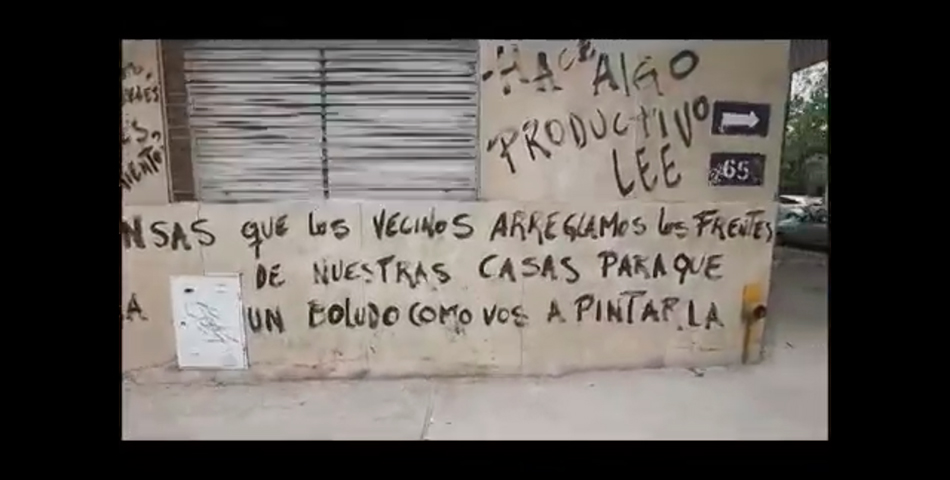 HACE ALGO
PRODUCTIVO
LEE
65
NSAS QUE LOS VECINOS ARREGLAMOS LOS FRENTES
DE NUESTRAS CASAS PARA QUE
A UN BOLUDO COMO VOS A PINTARLA